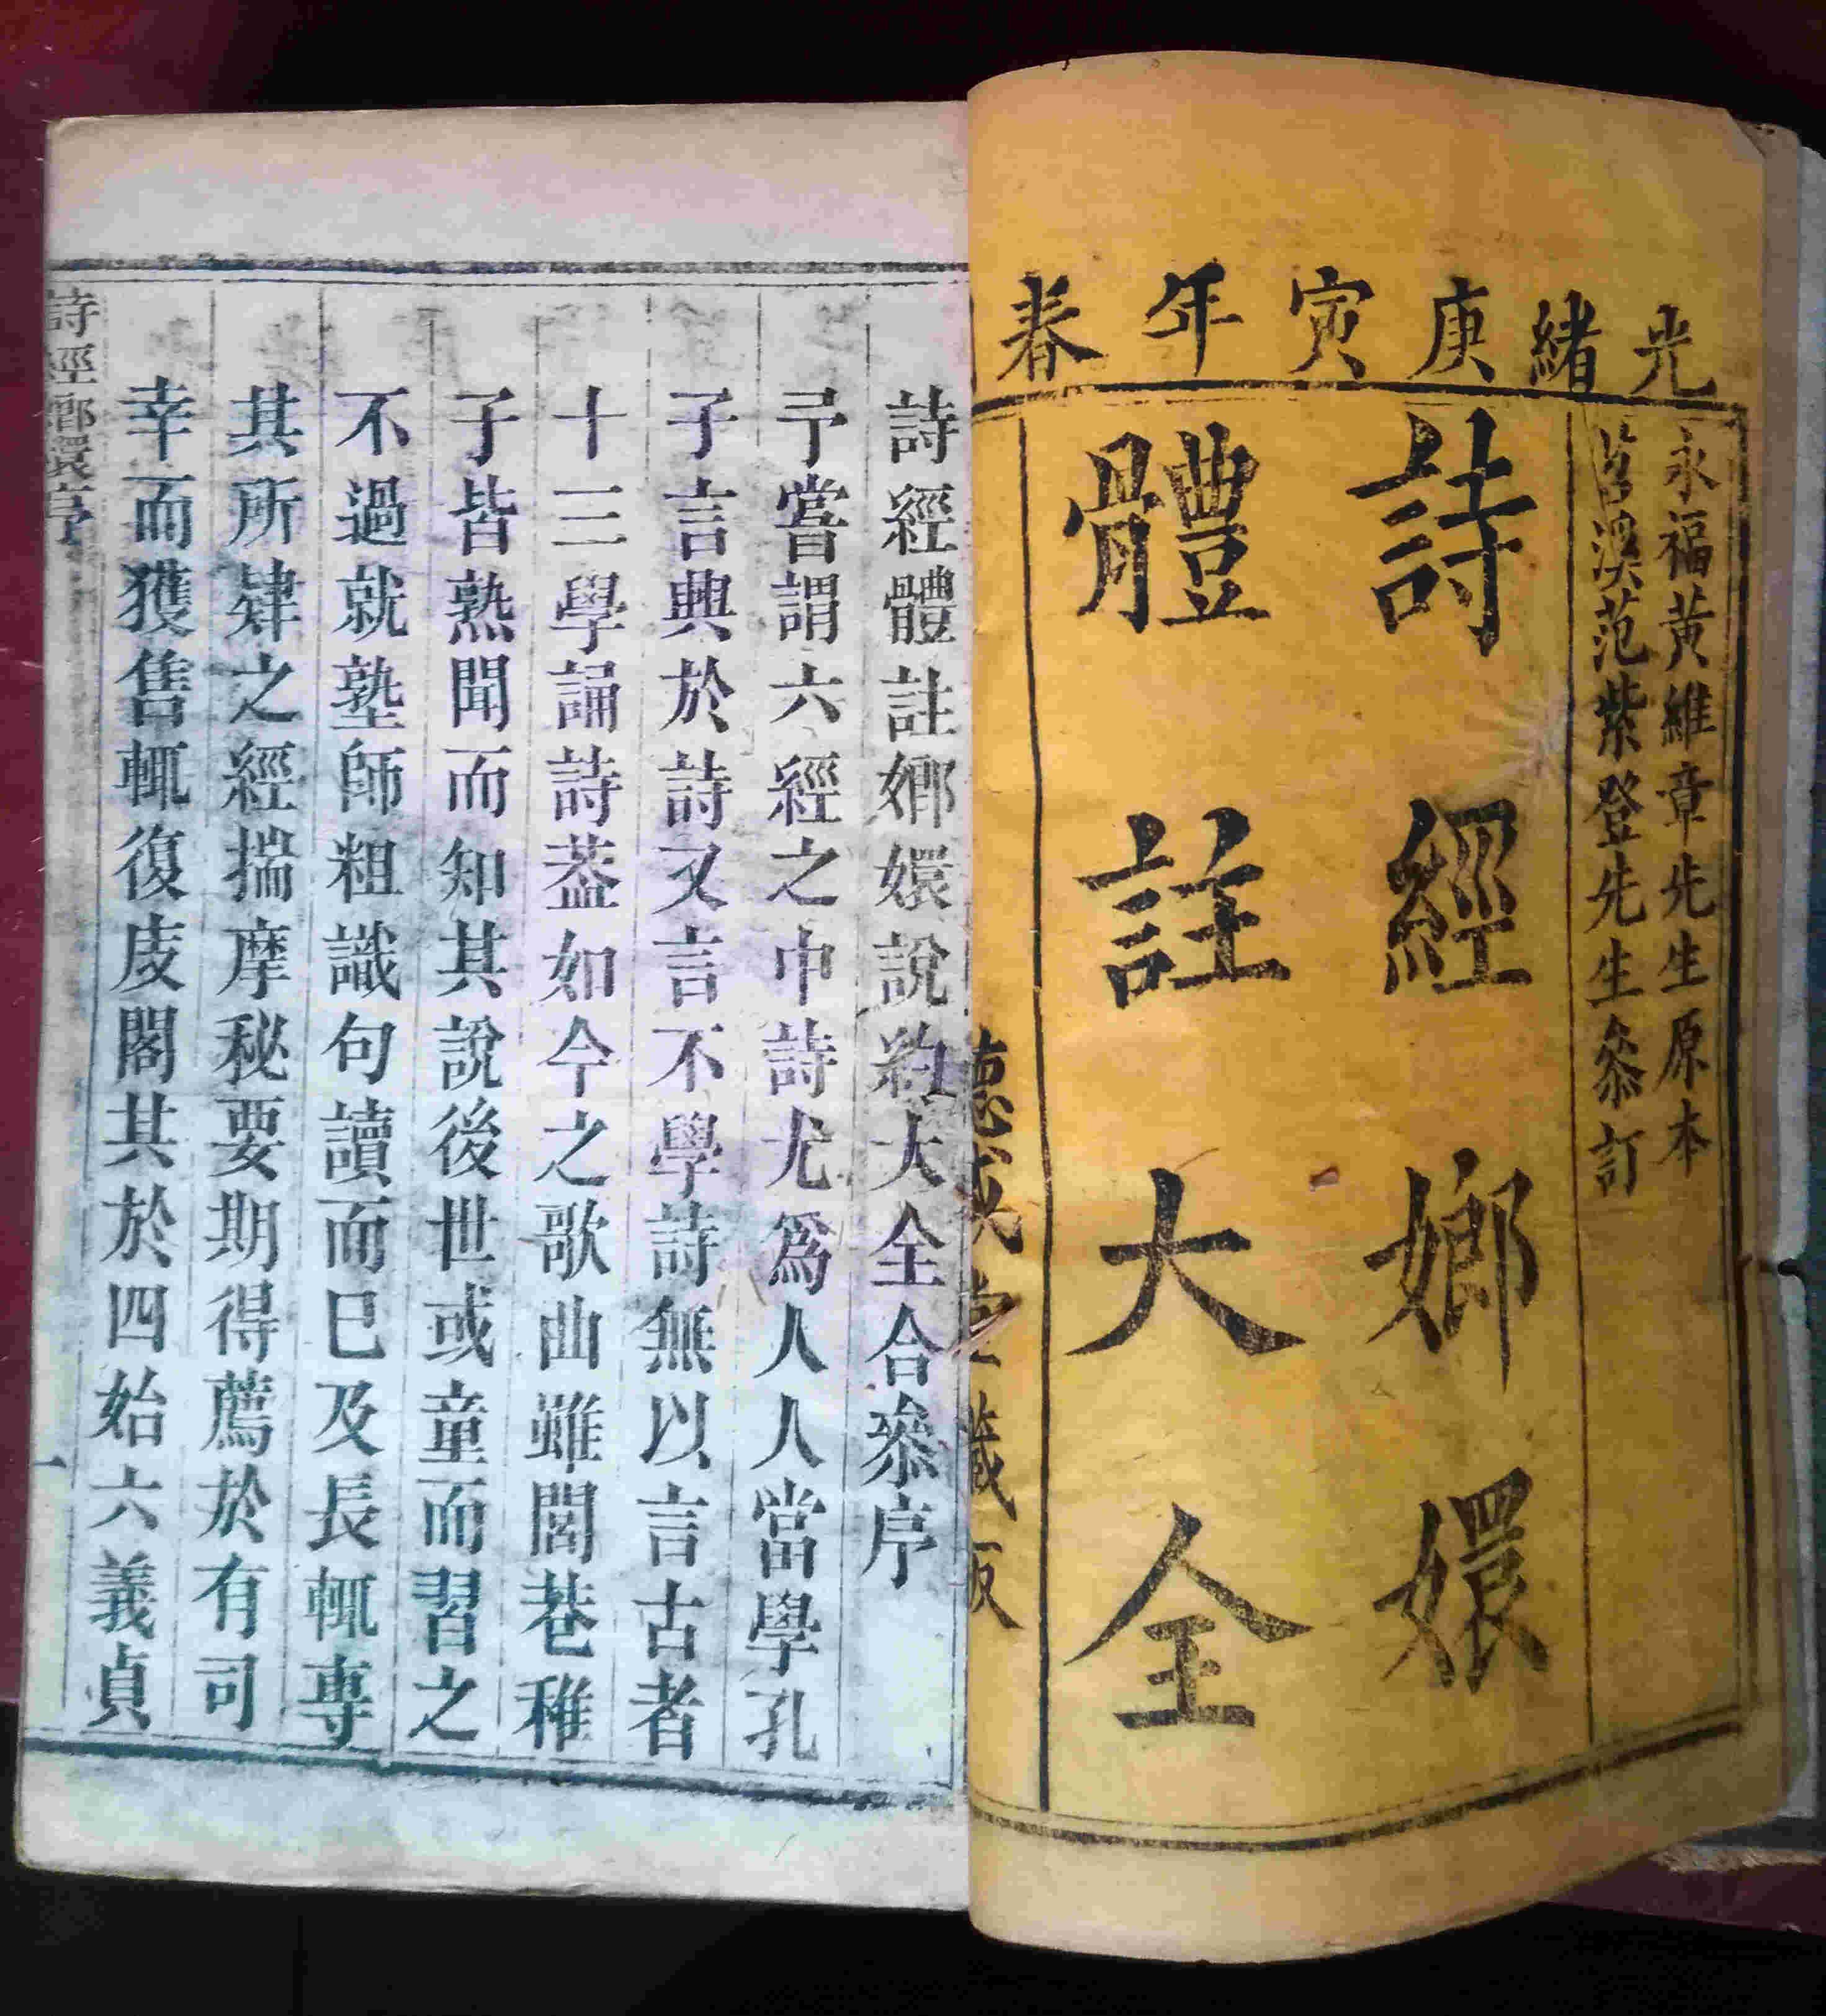 光緒庚寅年春
永福黃維章先生原本
苕溪范紫登先生叅訂
詩經嫏嬛
體註大全
詩經體註嫏嬛說約大全合叅序
予嘗謂六經之中詩尤爲人人當學孔
子言興於詩又言不學詩無以言古者
十三學誦詩葢如今之歌曲雖閭巷稚
子皆熟聞而知其說後世或童而習之
不過就塾師粗識句讀而已及長輒專
其所肄之經揣摩秘要期得薦於有司
幸而獲售輒復庋閣其於四始六義貞
詩經嫏嬛序
一